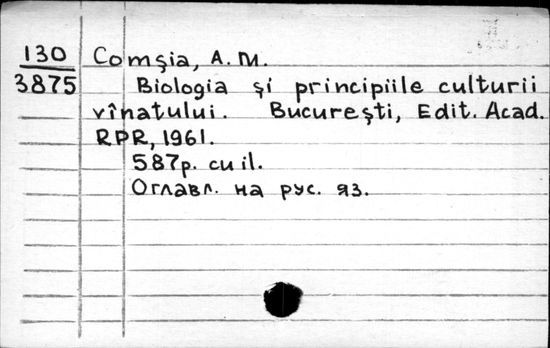 130 Comşia, A. M.
3875 Biologia şi principiile culturii
vînatului. Bucureşti, Edit. Acad.
RPR, 1961.
587p. cu il.
Оглавл. на рус. яз.